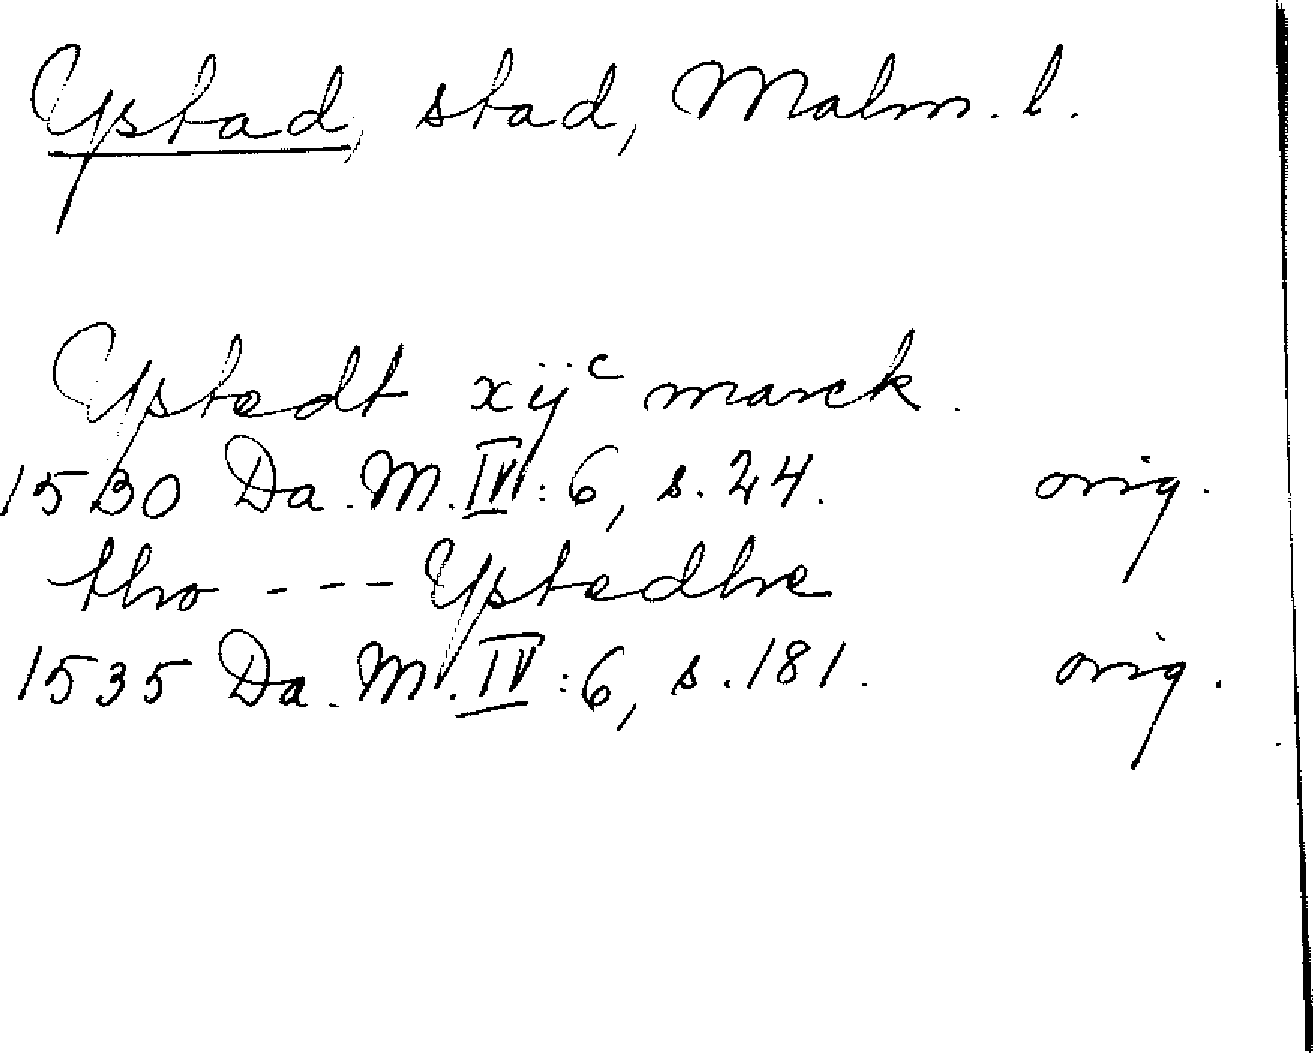 Ystad, stad, Malm. l.
Ystedt xijᶜ marck.
1530 Da. M. IV: 6, s. 24. orig.
tho --- Ystedhe
1535 Da. M. IV: 6, s. 181. orig.